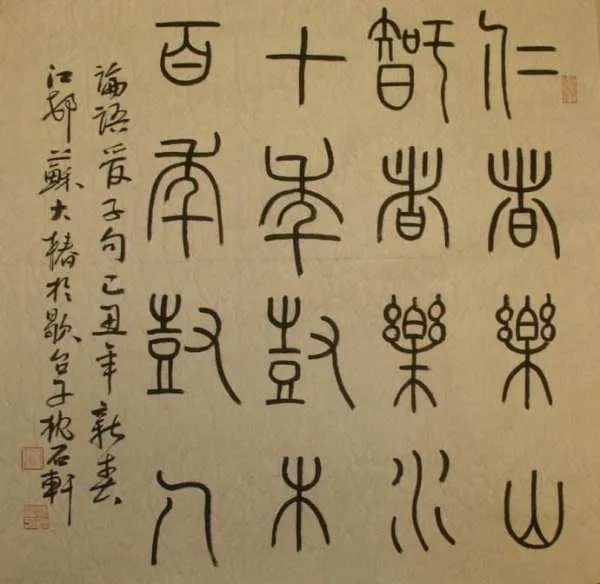 仁者樂山
智者樂水
十年尌木
百年尌人
論語管子句己丑年新春
江都蘇大椿於歇台子枕石軒